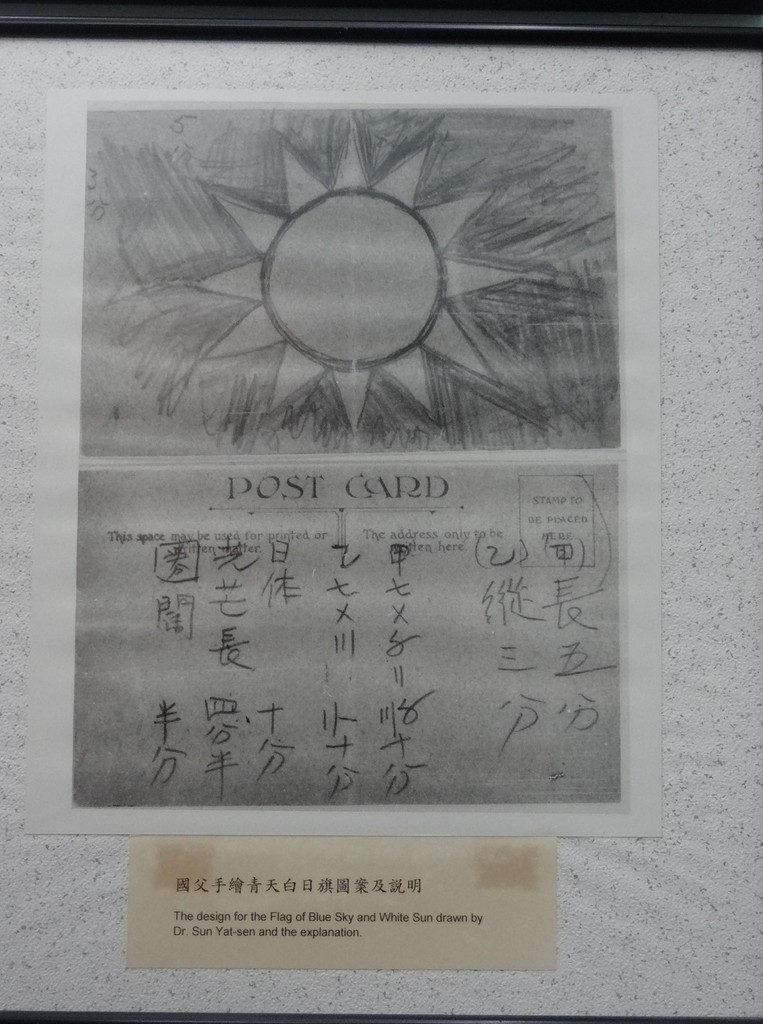 5分
3分
POST CARD
This space may be used for printed or
written matter.
The address only to be
written here
STAMP TO
BE PLACED
HERE
(甲)長五分
(乙)縱三分
甲七×〥〢〣〥十分
日体 十分
光芒長 四分半
圈闊 半分
國父手繪青天白日旗圖案及説明
The design for the Flag of Blue Sky and White Sun drawn by
Dr. Sun Yat-sen and the explanation.